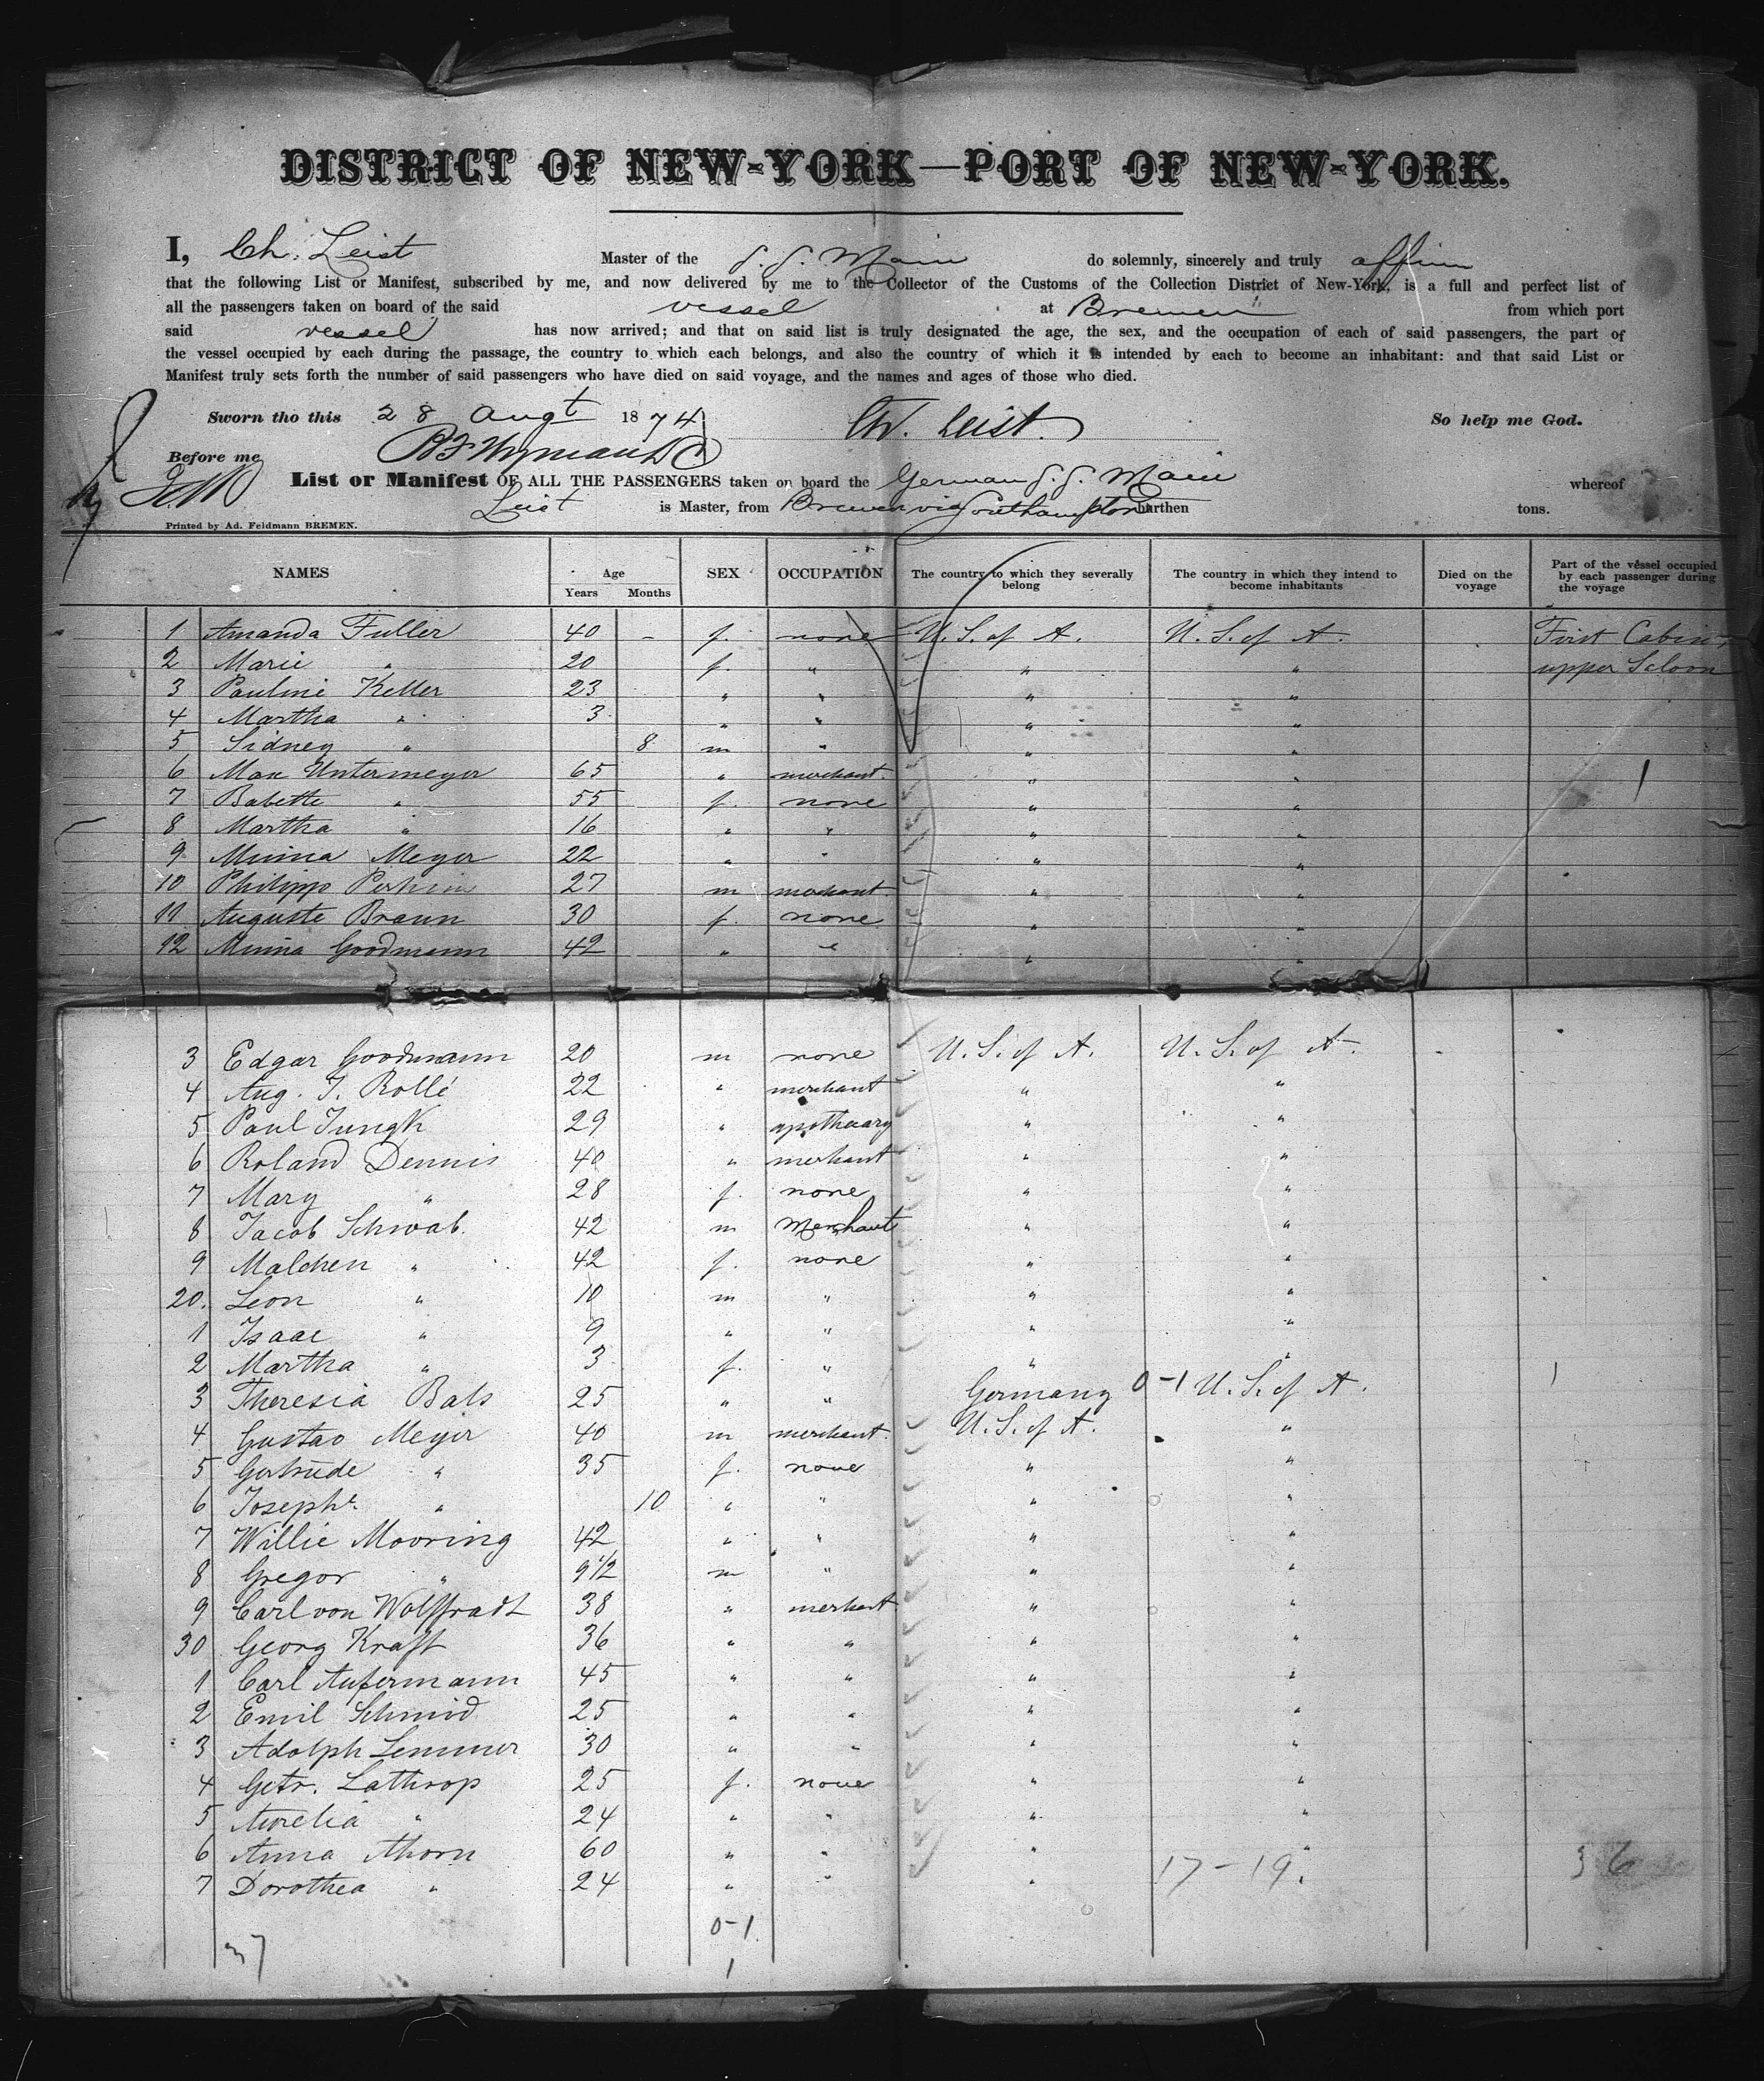 DISTRICT OF NEW-YORK—PORT OF NEW-YORK.
I, Ch. Leist Master of the S. S. Main do solemnly, sincerely and truly affirm
that the following List or Manifest, subscribed by me, and now delivered by me to the Collector of the Customs of the Collection District of New-York, is a full and perfect list of
all the passengers taken on board of the said vessel at Bremen from which port
said vessel has now arrived; and that on said list is truly designated the age, the sex, and the occupation of each of said passengers, the part of
the vessel occupied by each during the passage, the country to which each belongs, and also the country of which it is intended by each to become an inhabitant: and that said List or
Manifest truly sets forth the number of said passengers who have died on said voyage, and the names and ages of those who died.
Sworn tho this 28 Augt 1874 Ch. Leist. So help me God.
Before me
List or Manifest OF ALL THE PASSENGERS taken on board the German S. S. Main whereof
Leist is Master, from Bremen via Southampton burthen tons.
Printed by Ad. Feldmann BREMEN.
NAMES Age Years Months SEX OCCUPATION The country to which they severally belong The country in which they intend to become inhabitants Died on the voyage Part of the vessel occupied by each passenger during the voyage
1 Amanda Fuller 40 - f. none U. S. of A. U. S. of A. First Cabin,
2 Marie " 20 f. " " " upper Saloon
3 Pauline Keller 23 " " " "
4 Martha " 3 " " " "
5 Sidney " 8 m " " "
6 Max Untermeyer 65 " merchant. " " 1
7 Babette " 55 f. none " "
8 Martha " 16 " " " "
9 Minna Meyer 22 " " " "
10 Philipp 27 m merchant. " "
11 Auguste Braun 30 f. none " "
12 Minna Goodmann 42 " " " "
3 Edgar Goodmann 20 m none U. S. of A. U. S. of A.
4 Aug. J. Rollé 22 " merchant " "
5 Paul Jungk 29 " apothecary " "
6 Roland Dennis 40 " merchant " "
7 Mary " 28 f. none " "
8 Jacob Schwab. 42 m Merchant " "
9 Malchen " 42 f. none " "
20. Leon " 10 m " " "
1 Isaac " 9 " " " "
2 Martha " 3 f. " " "
3 Theresia Bals 25 " " Germany 0-1 U. S. of A. 1
4 Gustav Meyer 40 m merchant. U. S. of A. "
5 Gertrude " 35 f. none " "
6 Josephe " 10 " " " "
7 Willie Mooring 42 " " " "
8 Gregor " 9 1/2 m " " "
9 Carl von Wolffradt 38 " merchant " "
30 Georg Kraft 36 " " " "
1 Carl Aufermann 45 " " " "
2 Emil Schmid 25 " " " "
3 Adolph Lemmer 30 " " " "
4 Getr. Lathrop 25 f. none " "
5 Aurelia " 24 " " " "
6 Anna Thorn 60 " " " "
7 Dorothea " 24 " " " 17-19. 36
0-1
37 1